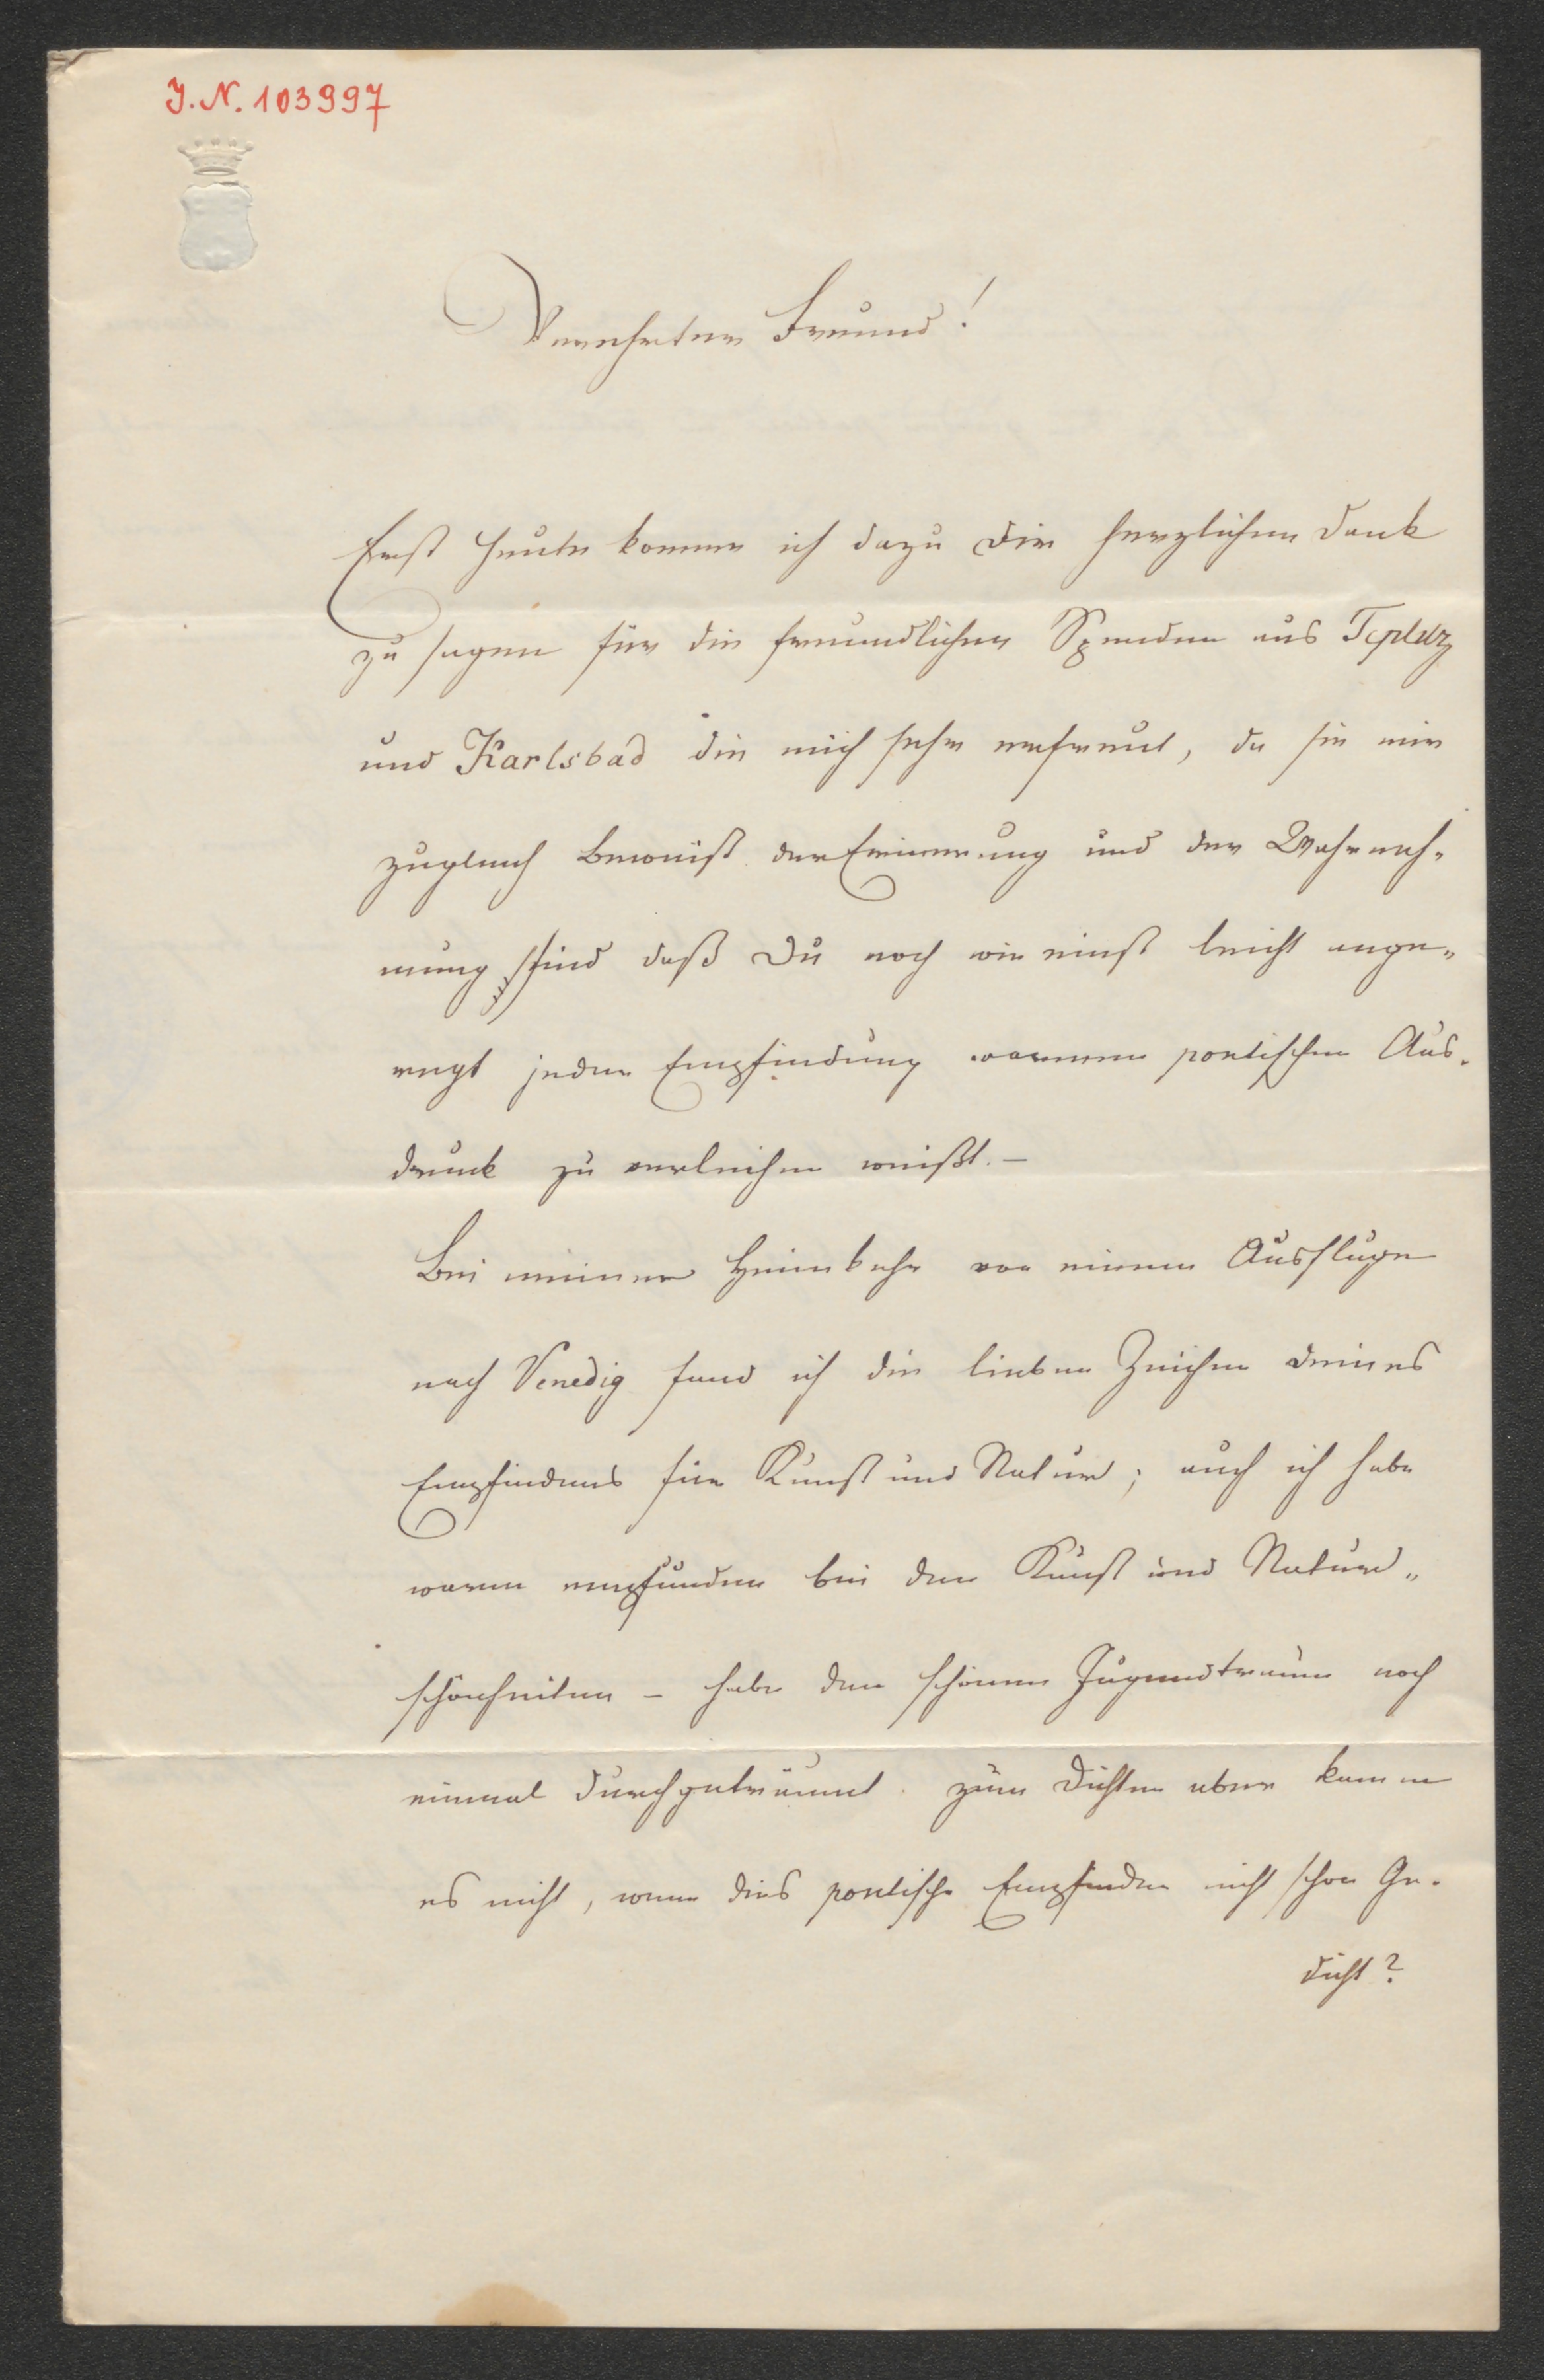 J. N. 103997
Verehrter Freund!
Erst heute komme ich dazu Dir herzlichen Dank
zu sagen für die freundlichen Spenden aus Teplitz
und Karlsbad die mich sehr erfreut, da sie mir
zugleich Beweise der Erinnerung und der Wahrneh-
mung sind daß Du noch wie einst leicht ange-
regt jeder Empfindung warmen poetischen Aus-
druck zu verleihen weißt. –
Bei meiner Heimkehr von einem Ausfluge
nach Venedig fand ich die lieben Zeichen Deines
Empfindens für Kunst und Natur; auch ich habe
warm empfunden bei den Kunst und Natur-
schönheiten – habe den schönen Jugendtraum noch
einmal durchgeträumt. zum Dichten aber kam
es nicht, wenn dies poetische Empfinden nicht schon Ge-
dicht?